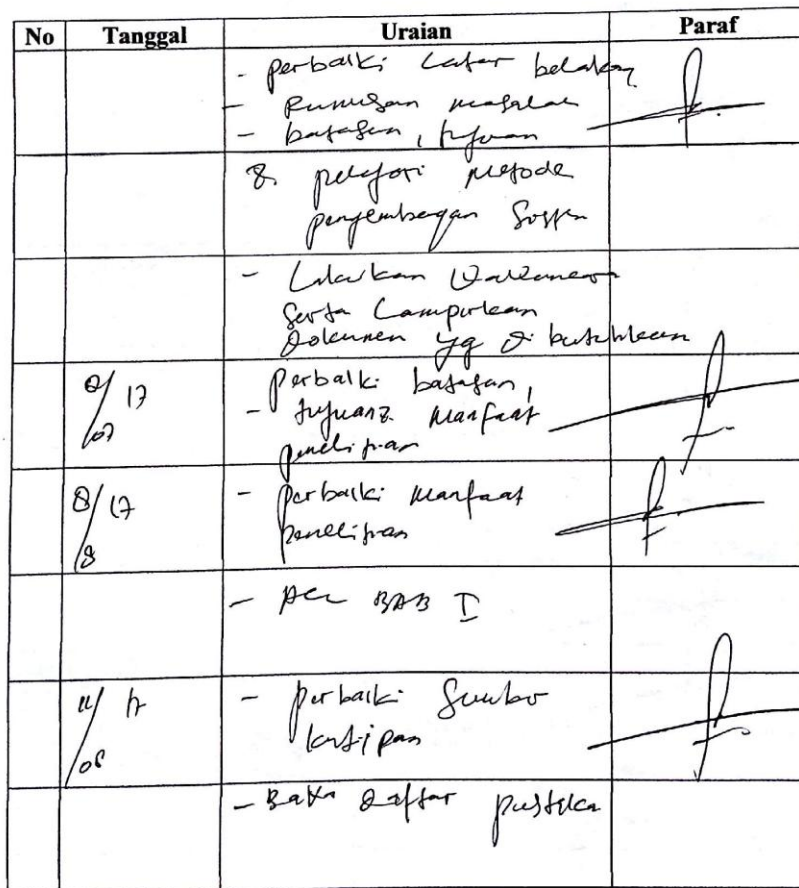 No Tanggal Uraian Paraf
- perbaiki Latar belakang
- Rumusan masalah
- batasan, tujuan
& pelajari metode
pengembangan Sistem
- Lakukan
serta Lampirkan
Dokumen yg di butuhkan
/07 17 - perbaiki batasan,
- tujuan & Manfaat
penelitian
8/8 17 - perbaiki Manfaat
penelitian
- Acc BAB I
11/08 17 - perbaiki Sumber
kutipan
- Daftar pustaka